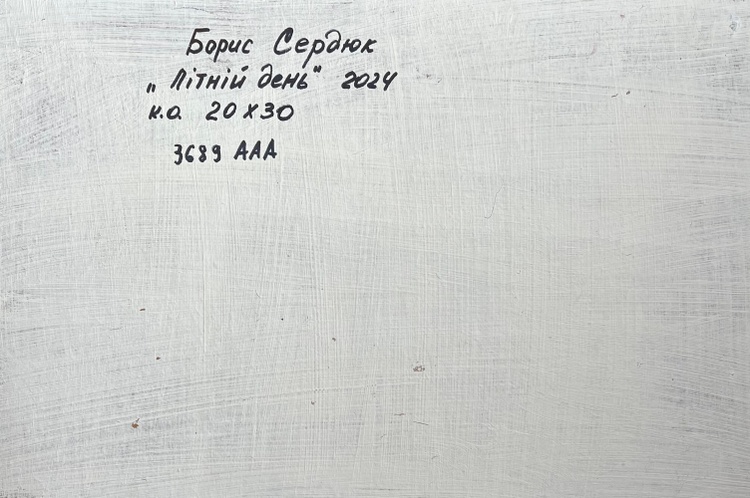 Борис Сердюк
„Літній день" 2024
к.о. 20х30
3689 ААА